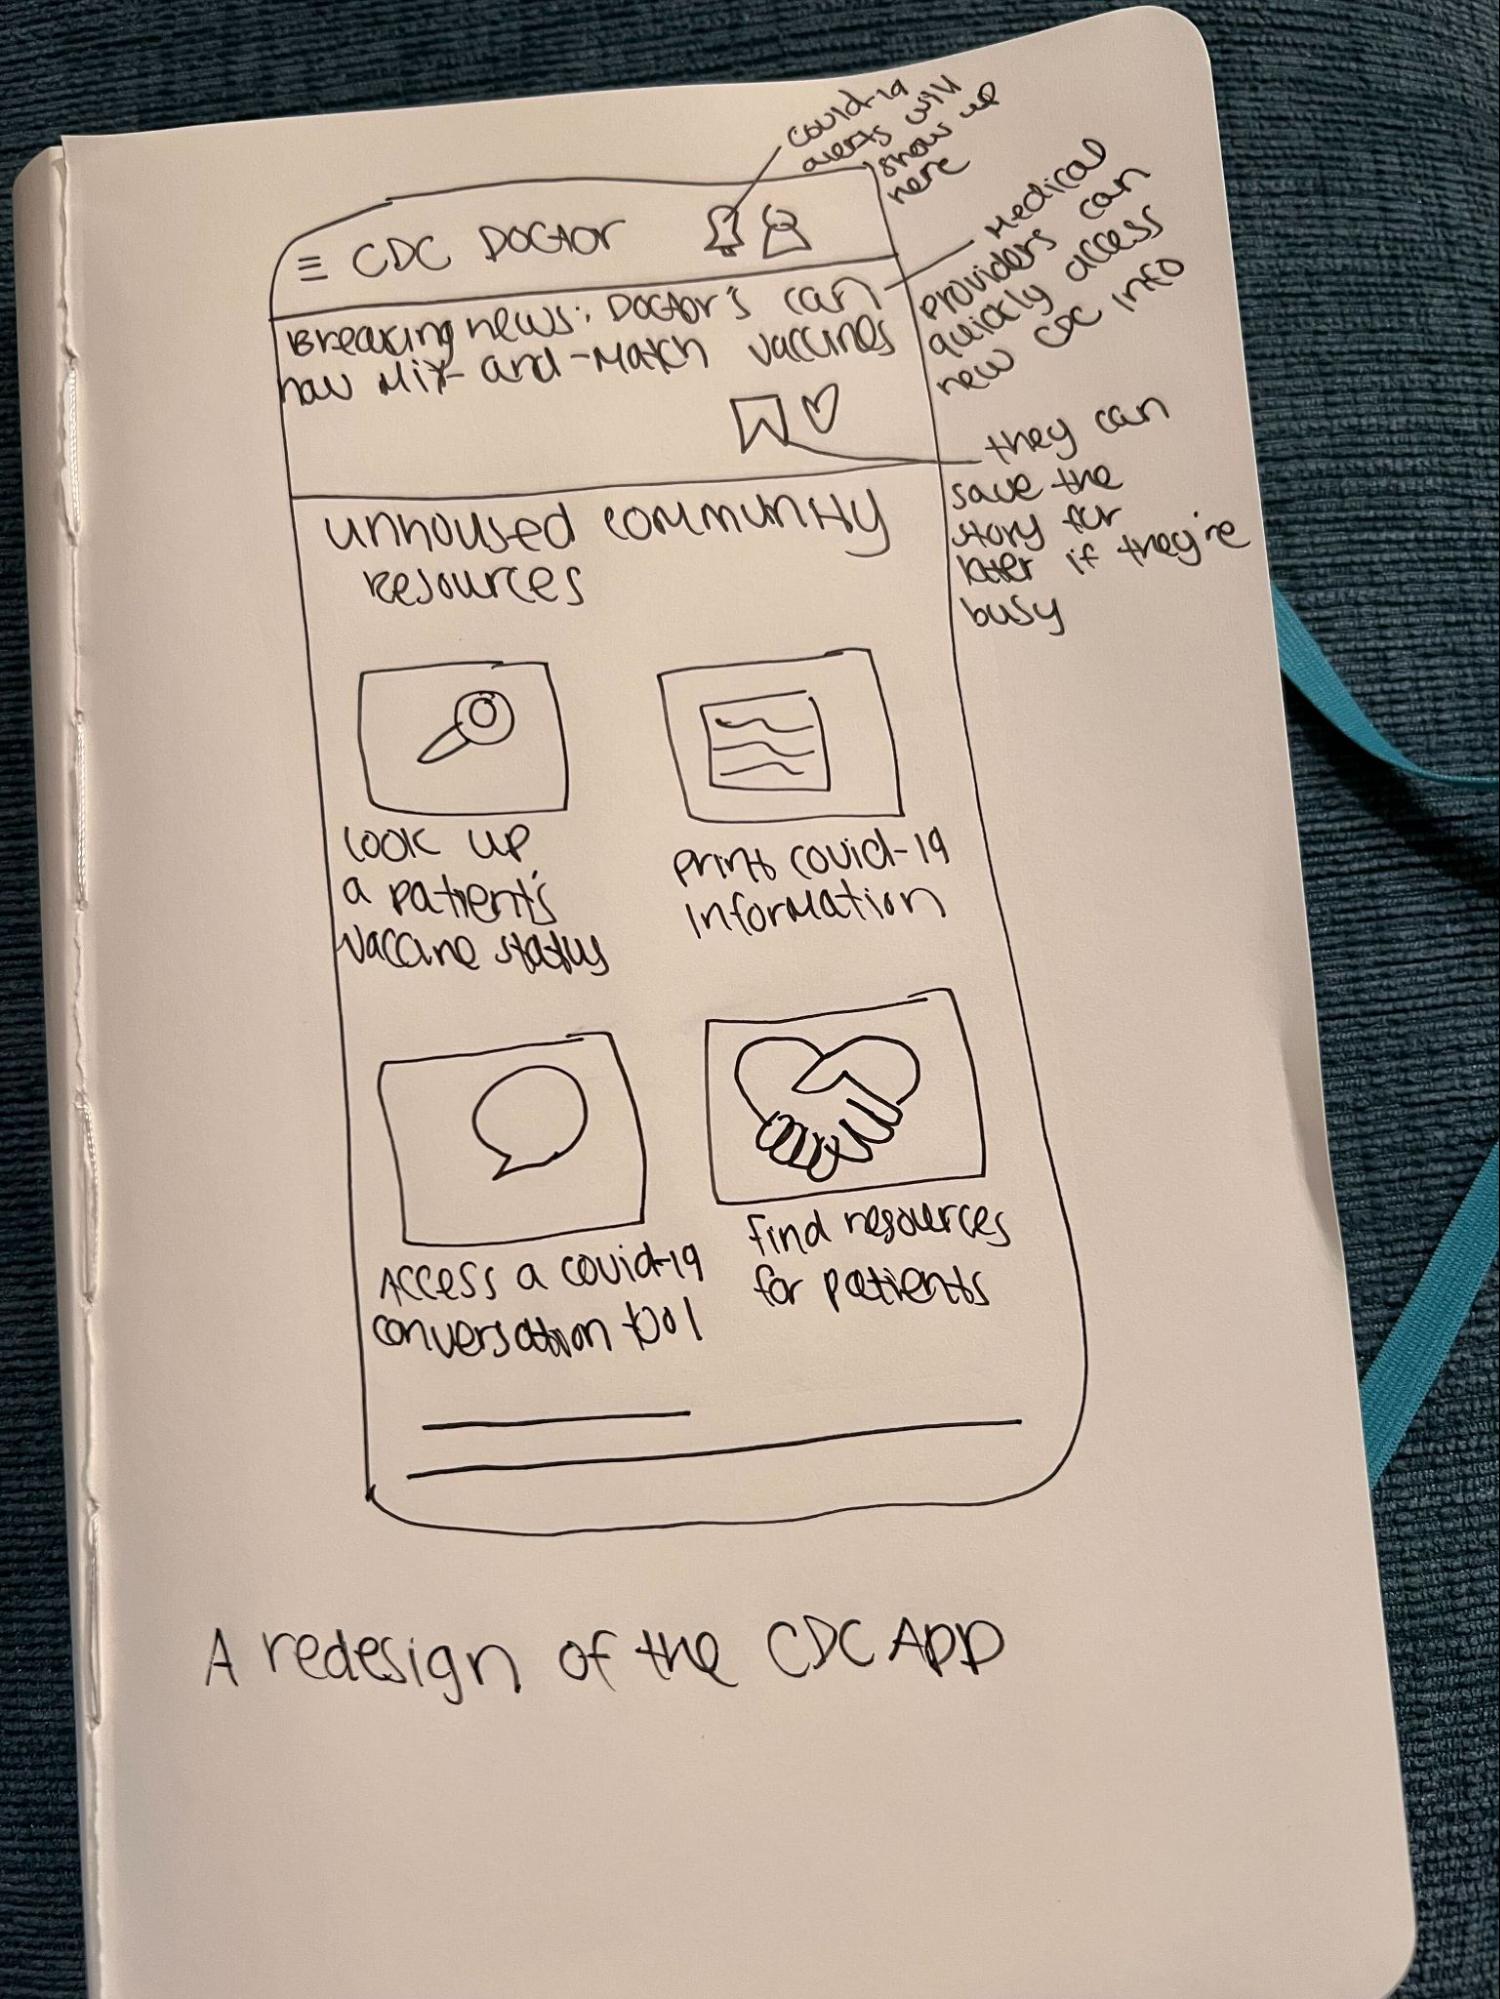 covid-19
alerts will
show up
here
≡ CDC DOCTOR
Medical
providers can
quickly access
new CDC info
Breaking news: Doctor's can
now Mix-and-Match vaccines
they can
save the
story for
later if they're
busy
unhoused community
resources
look up
a patient's
vaccine status
print covid-19
information
Access a covid-19
conversation tool
find resources
for patients
A redesign of the CDC App